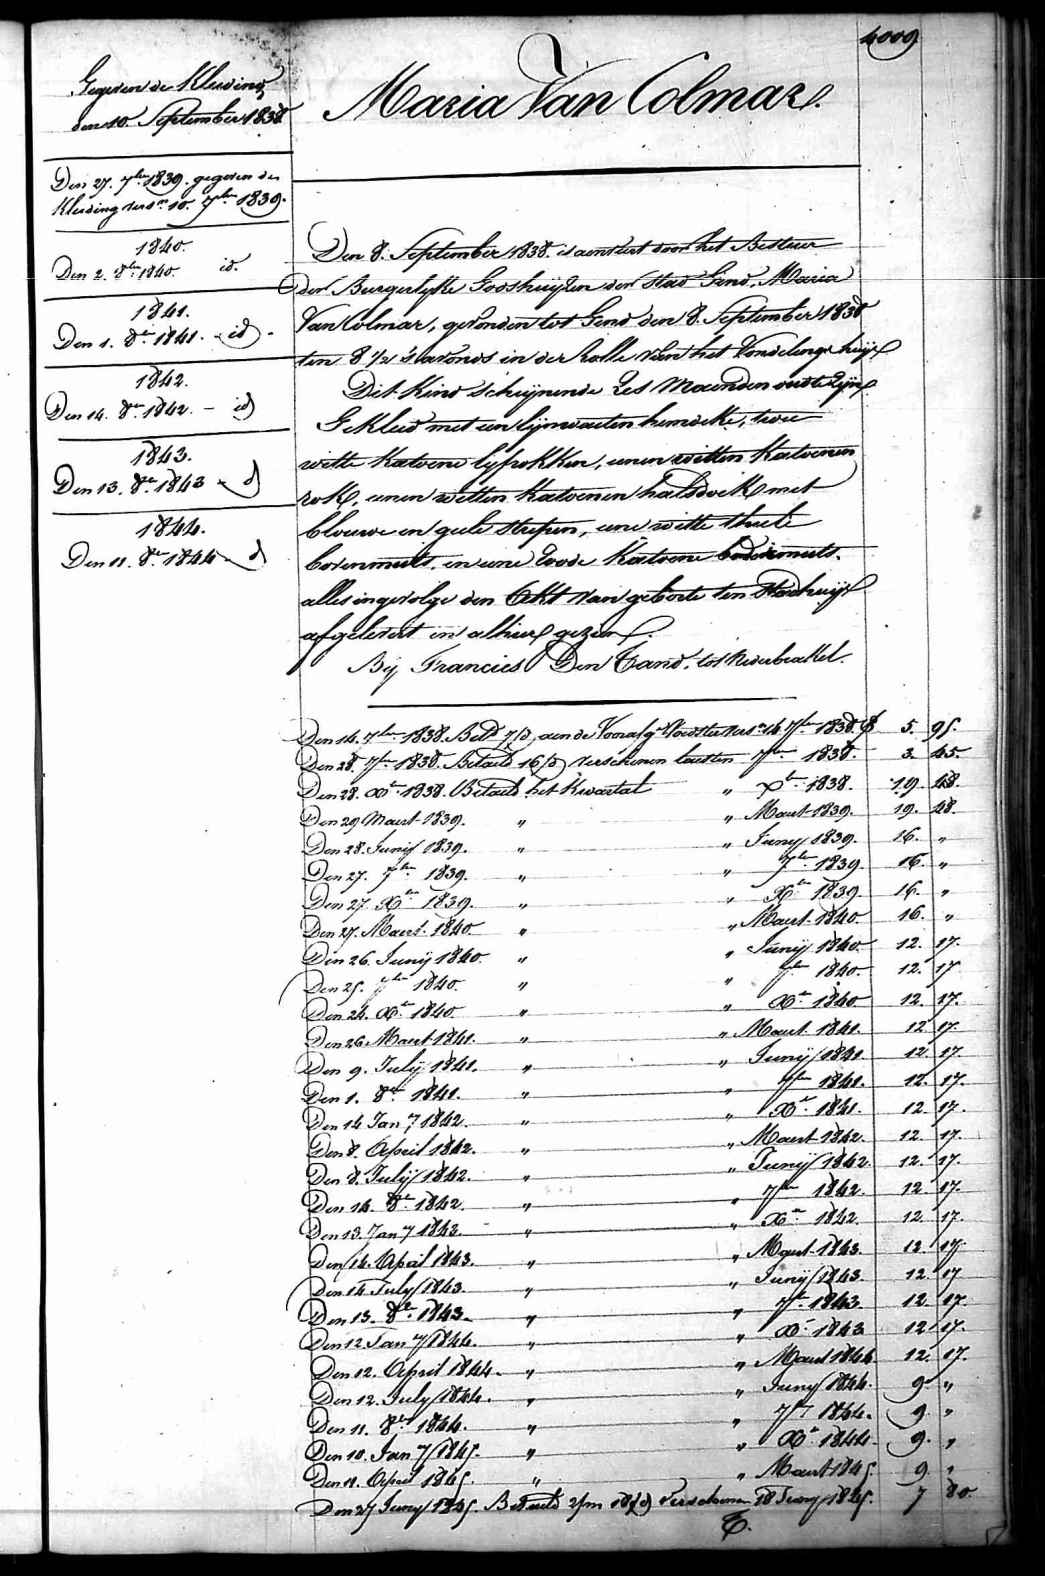 4009
Maria Van Colmar.
Gegeven de Kleeding
den 10. September 1838
Den 27. 7ber 1839. gegeven den
Kleeding versn 10. 7ber 1839.
1840.
Den 2. 8ber 1840. id.
1841.
Den 1. 8er 1841. - id -
1842.
Den 14. 8er 1842. - id
1843.
Den 13. 8er 1843 - d
1844.
Den 11. 8er 1844 - d
Den 8. September 1838. is aenveert door het Bestuer
der Burgerlyke Godshuijzen der Stad Gend, Maria
Van Colmar, gevonden tot Gend den 8. September 1838
ten 8 1/2 's avonds in de rolle van het Vondelinge huijs
Dit Kind scheijnende zes Maenden oud te zijn.
Gekleed met een lijnwaeten hemdeke, twee
witte Katoene lyfrokken, eenen witten Katoenen
rok, eenen witten Katoenen halsdoek met
blauwe en geele strepen, eene witte thule
bovenmuts, en eene roode Katoene ondermuts.
alles ingevolge den Akt van geboorte ten Stadhuijs
afgelevert en alhier gezien.
Bij Francies Den Tand, tot Nederbrakel.
Den 14. 7ber 1838. Betd 7/d aen de Voorafge Voedster versn 14 7ber 1838. f 5. 95.
Den 28. 7ber 1838. Betaeld 16/d verschenen laesten 7ber 1838. 3. 45.
Den 28. Xber 1838. Betaeld het Kwartal " Xber 1838. 19. 48.
Den 29 Maert 1839. " " Maert 1839. 19. 48.
Den 28. Junij 1839. " " Juny 1839. 16. "
Den 27. 7ber 1839. " " 7ber 1839 16. "
Den 27. Xber 1839. " " Xber 1839. 16. "
Den 27. Maert 1840. " " Maert 1840. 16. "
Den 26. Junij 1840. " " Junij 1840. 12. 17.
Den 25. 7ber 1840. " " 7ber 1840. 12. 17
Den 24. Xber 1840. " " Xber 1840 12. 17.
Den 26 Maert 1841. " " Maert 1841. 12 17.
Den 9. Julij 1841. " " Junij 1841 12. 17
Den 1. 8er 1841. " " 7ber 1841. 12. 17.
Den 14 Jany 1842. " " Xer 1841. 12. 17.
Den 8. April 1842. " " Maert 1842. 12. 17.
Den 8. Julij 1842. " " Junij 1842. 12. 17.
Den 14. 8er 1842. " " 7ber 1842. 12. 17.
Den 13. Jany 1843. " " Xer 1842. 12. 17.
Den 14. April 1843. " " Maert 1843 12. 17
Den 14 July 1843. " " Junij 1843. 12. 17
Den 13. 8er 1843. " " 7er 1843 12. 17.
Den 12 Jany 1844. " " Xr 1843 12 17.
Den 12. April 1844. " " Maert 1844 12. 17.
Den 12. July 1844. " " Juny 1844. 9 "
Den 11. 8er 1844. " " 7er 1844. 9. "
Den 10. Jany 1845. " " Xr 1844 9. "
Den 11. April 1845. " " Maert 1845 9 "
Den 27 Juny 1845. Betaeld 2/m 18/d verschenen 18 Juny 1845. 7 80.